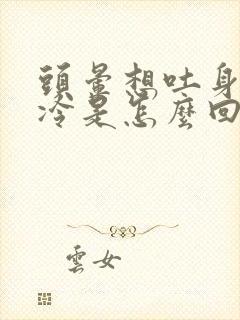 頭暈想吐身
冷是怎麼回
雲女